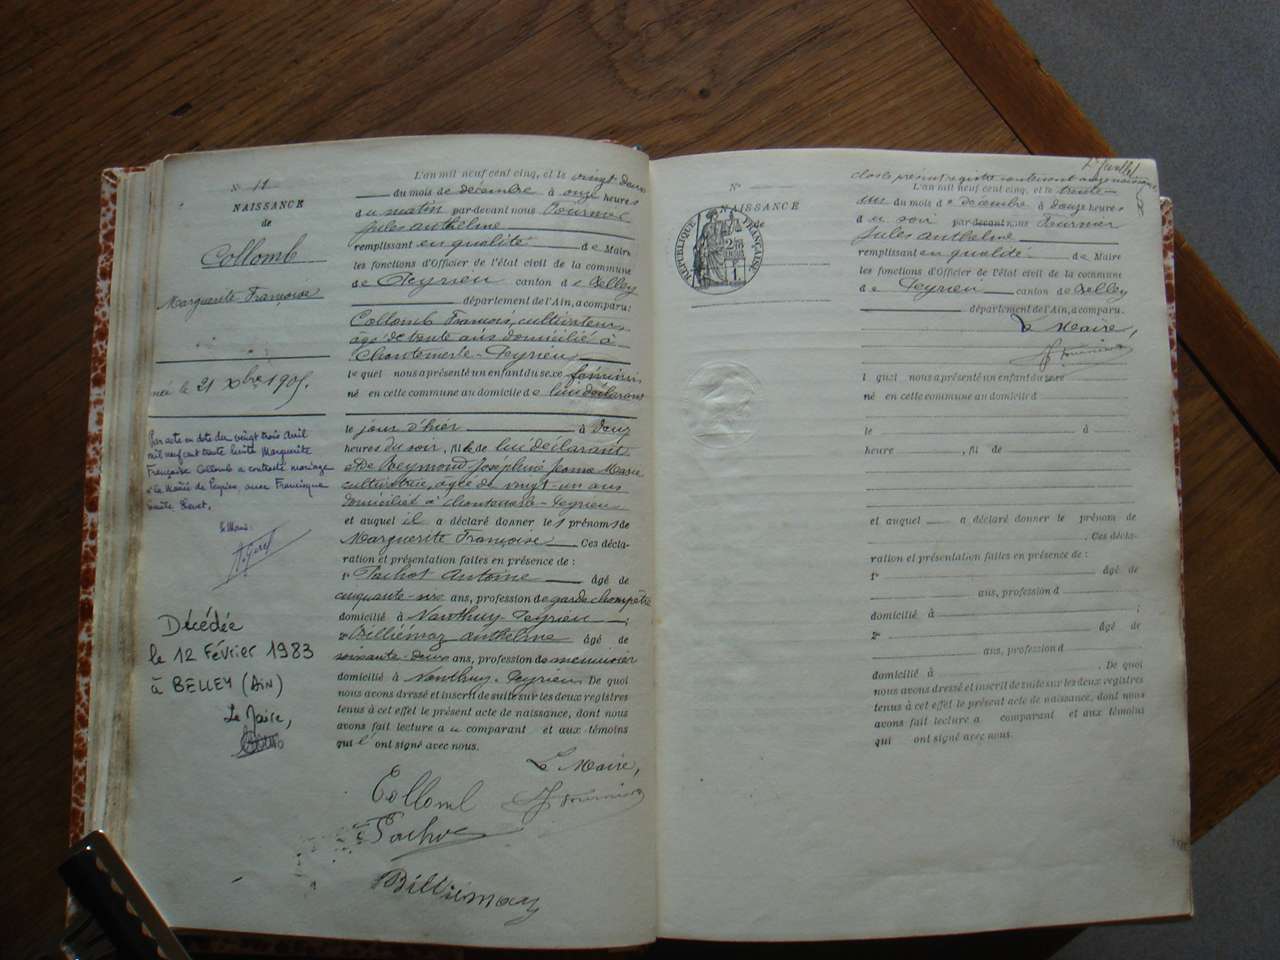 N° 11
NAISSANCE
de
Collomb
Marguerite Françoise
née le 21 Xbre 1905.
Par acte en date du vingt trois avril
mil neuf cent trente Marguerite
Françoise Collomb a contracté mariage
à la Mairie de Peyrieu, avec Francisque
le Maire
Décédée
le 12 Février 1983
à BELLEY (AIN)
Le Maire,
L'an mil neuf cent cinq, et le vingt-deux
du mois de décembre à onze heures
du matin par-devant nous Fournier
Jules Anthelme
remplissant en qualité de Maire
les fonctions d'Officier de l'état civil de la commune
de Peyrieu canton de Belley
département de l'Ain, a comparu:
Collomb François, cultivateur,
âgé de trente ans domicilié à
Chantemerle-Peyrieu
lequel nous a présenté un enfant du sexe féminin
né en cette commune au domicile de lui déclarant
le jour d'hier à
heures du soir, fille de lui déclarant
et de Reymond Joséphine Jeanne Marie
cultivatrice, âgée de vingt-un ans
domiciliée à Chantemerle-Peyrieu
et auquel il a déclaré donner les prénoms de
Marguerite Françoise Ces décla-
ration et présentation faites en présence de :
1° Pachot Antoine âgé de
cinquante ans, profession de garde champêtre
domicilié à Nanthuy-Peyrieu ;
2° Billiémaz Anthelme âgé de
soixante-deux ans, profession de menuisier
domicilié à Nanthuy-Peyrieu De quoi
nous avons dressé et inscrit de suite sur les deux registres
tenus à cet effet le présent acte de naissance, dont nous
avons fait lecture au comparant et aux témoins
qui l'ont signé avec nous.
Le Maire,
Collomb J Fournier
Pachot
Billiémaz
N°
NAISSANCE
de
RÉPUBLIQUE FRANÇAISE
clos le présent registre contenant onze naissances
L'an mil neuf cent cinq, et le trente-
un du mois de Décembre à douze heures
du soir par-devant nous Fournier
Jules Anthelme
remplissant en qualité de Maire
les fonctions d'Officier de l'état civil de la commune
de Peyrieu canton de Belley
département de l'Ain, a comparu.
Le Maire,
J Fournier
l quel nous a présenté un enfant du sexe
né en cette commune au domicile d
le à
heure , fil de
et auquel a déclaré donner le prénom de
. Ces décla-
ration et présentation faites en présence de :
1° âgé de
ans, profession d
domicilié à ;
2° âgé de
ans, profession d
domicilié à . De quoi
nous avons dressé et inscrit de suite sur les deux registres
tenus à cet effet le présent acte de naissance, dont nous
avons fait lecture a comparant et aux témoins
qui ont signé avec nous.